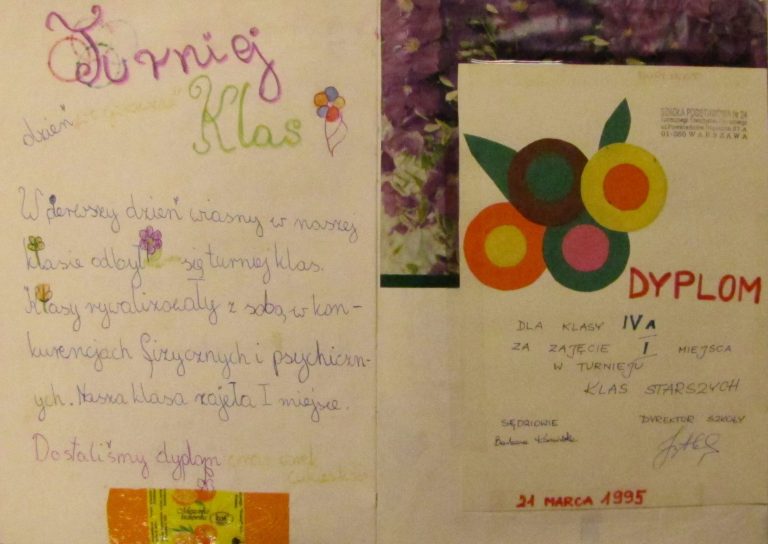 Turniej
Klas
dzień
W pierwszy dzień wiosny w naszej
klasie odbył się turniej klas.
Klasy rywalizowały z sobą, w kon-
kurencjach fizycznych i psychiczn-
ych. Nasza klasa zajęła I miejsce.
Dostaliśmy dyplom
SZKOŁA PODSTAWOWA Nr 24
01-650 WARSZAWA
DYPLOM
DLA KLASY IV A
ZA ZAJĘCIE I MIEJSCA
W TURNIEJU
KLAS STARSZYCH
SĘDZIOWIE
DYREKTOR SZKOŁY
Barbara
21 MARCA 1995